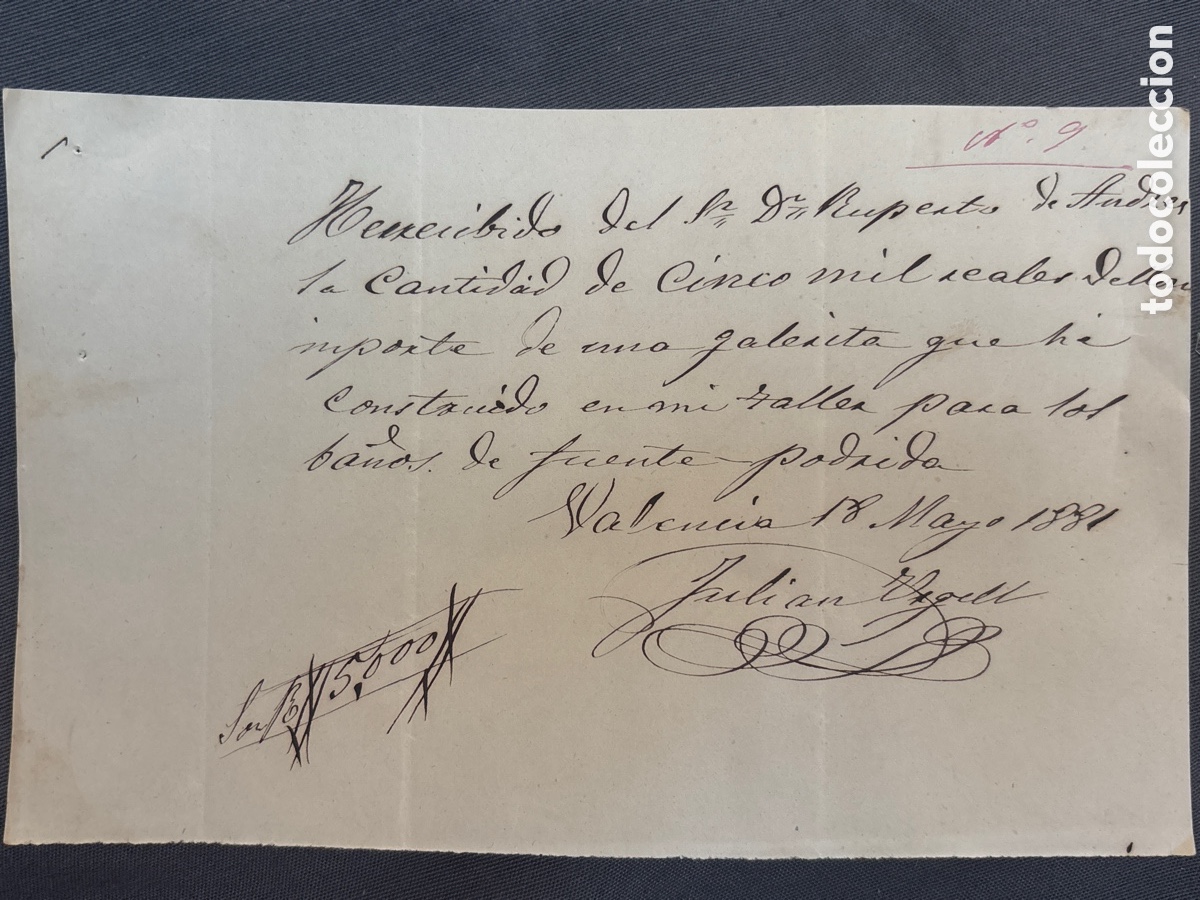 Nº. 9
Herrecibido del Sr. Dn. Ruperto de Andres
la Cantidad de Cinco mil reales Dellon
inporte de una galerita que ha
construido en mi taller para los
baños. de fuente-podrida
Valencia 18 Mayo 1881
Julian Urgell
Son R 5,000
todocoleccion